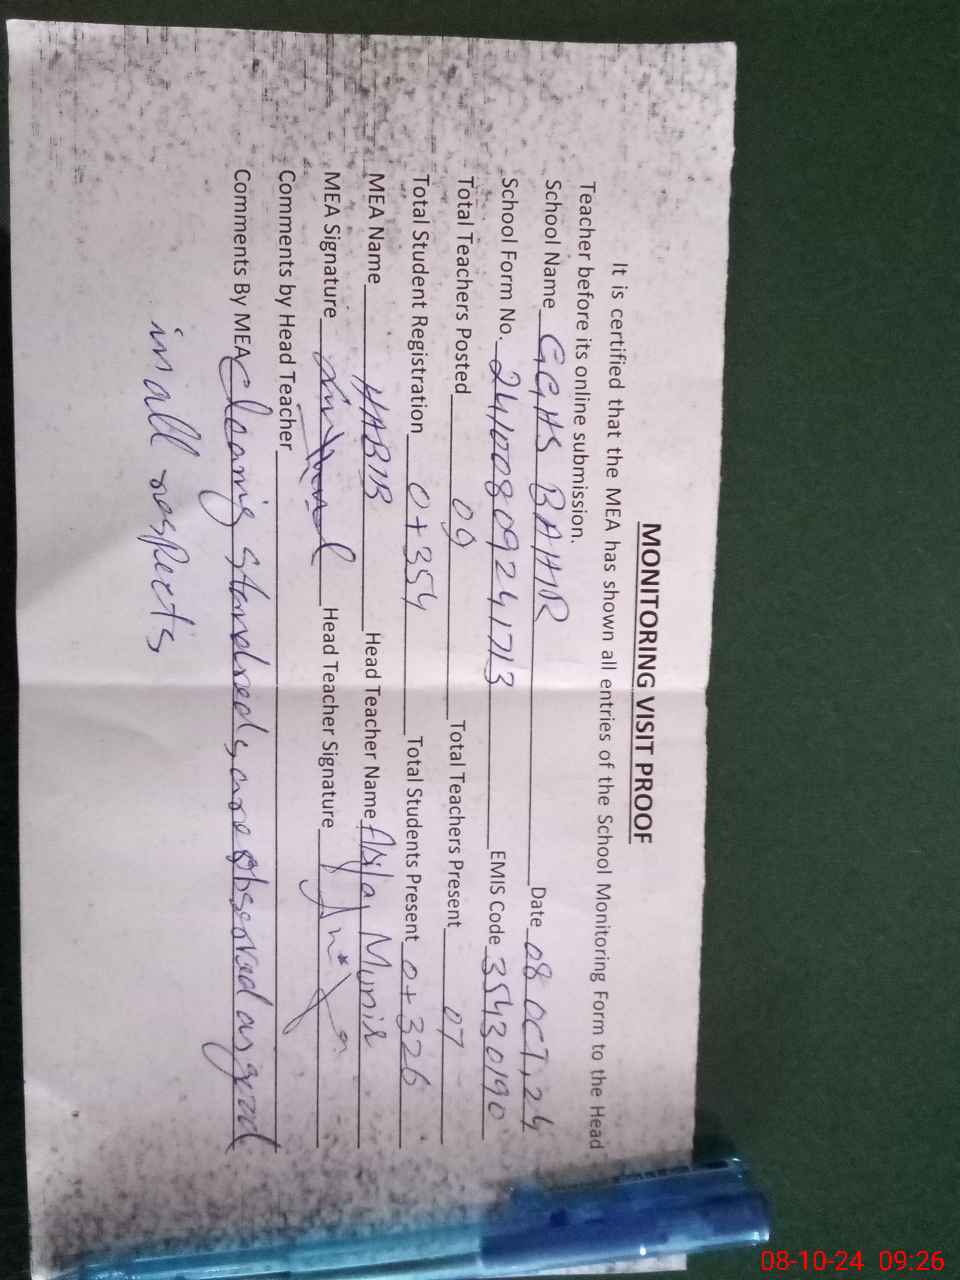 MONITORING VISIT PROOF
It is certified that the MEA has shown all entries of the School Monitoring Form to the Head
Teacher before its online submission.
School Name GGHS BAHIR Date 08 OCT, 24
School Form No. 24100809241713 EMIS Code 35430190
Total Teachers Posted 09 Total Teachers Present 07
Total Student Registration 0+354 Total Students Present 0+326
MEA Name HABIB Head Teacher Name Munir
MEA Signature Head Teacher Signature
Comments by Head Teacher
Comments By MEA Cleaning standreds, are observed as good
in all respects,
08-10-24 09:26